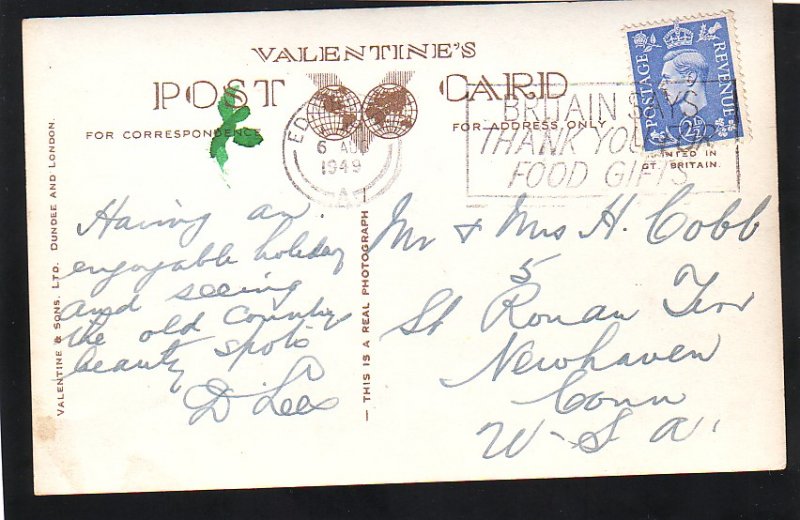 VALENTINE'S
POST CARD
FOR CORRESPONDENCE
FOR ADDRESS ONLY
PRINTED IN
GT. BRITAIN.
POSTAGE REVENUE
2½D
6 AU
1949
BRITAIN SAYS
THANK YOU FOR
FOOD GIFTS
VALENTINE & SONS. LTD. DUNDEE AND LONDON.
THIS IS A REAL PHOTOGRAPH
Having an
enjoyable holiday
and seeing
the old country
beauty spots
Mr & Mrs H. Cobb
5
St Ronan Terr
Newhaven
Conn
U-S A.